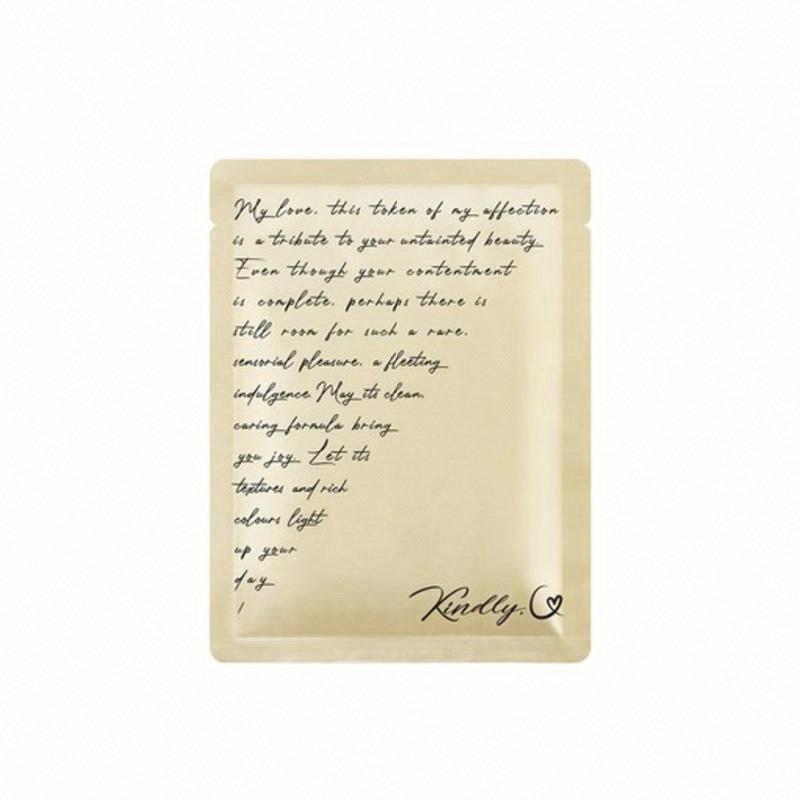 My love, this token of my affection
is a tribute to your untainted beauty.
Even though your contentment
is complete, perhaps there is
still room for such a rare,
sensorial pleasure, a fleeting
indulgence. May its clean,
caring formula bring
you joy. Let its
textures and rich
colours light
up your
day
/
Kindly.